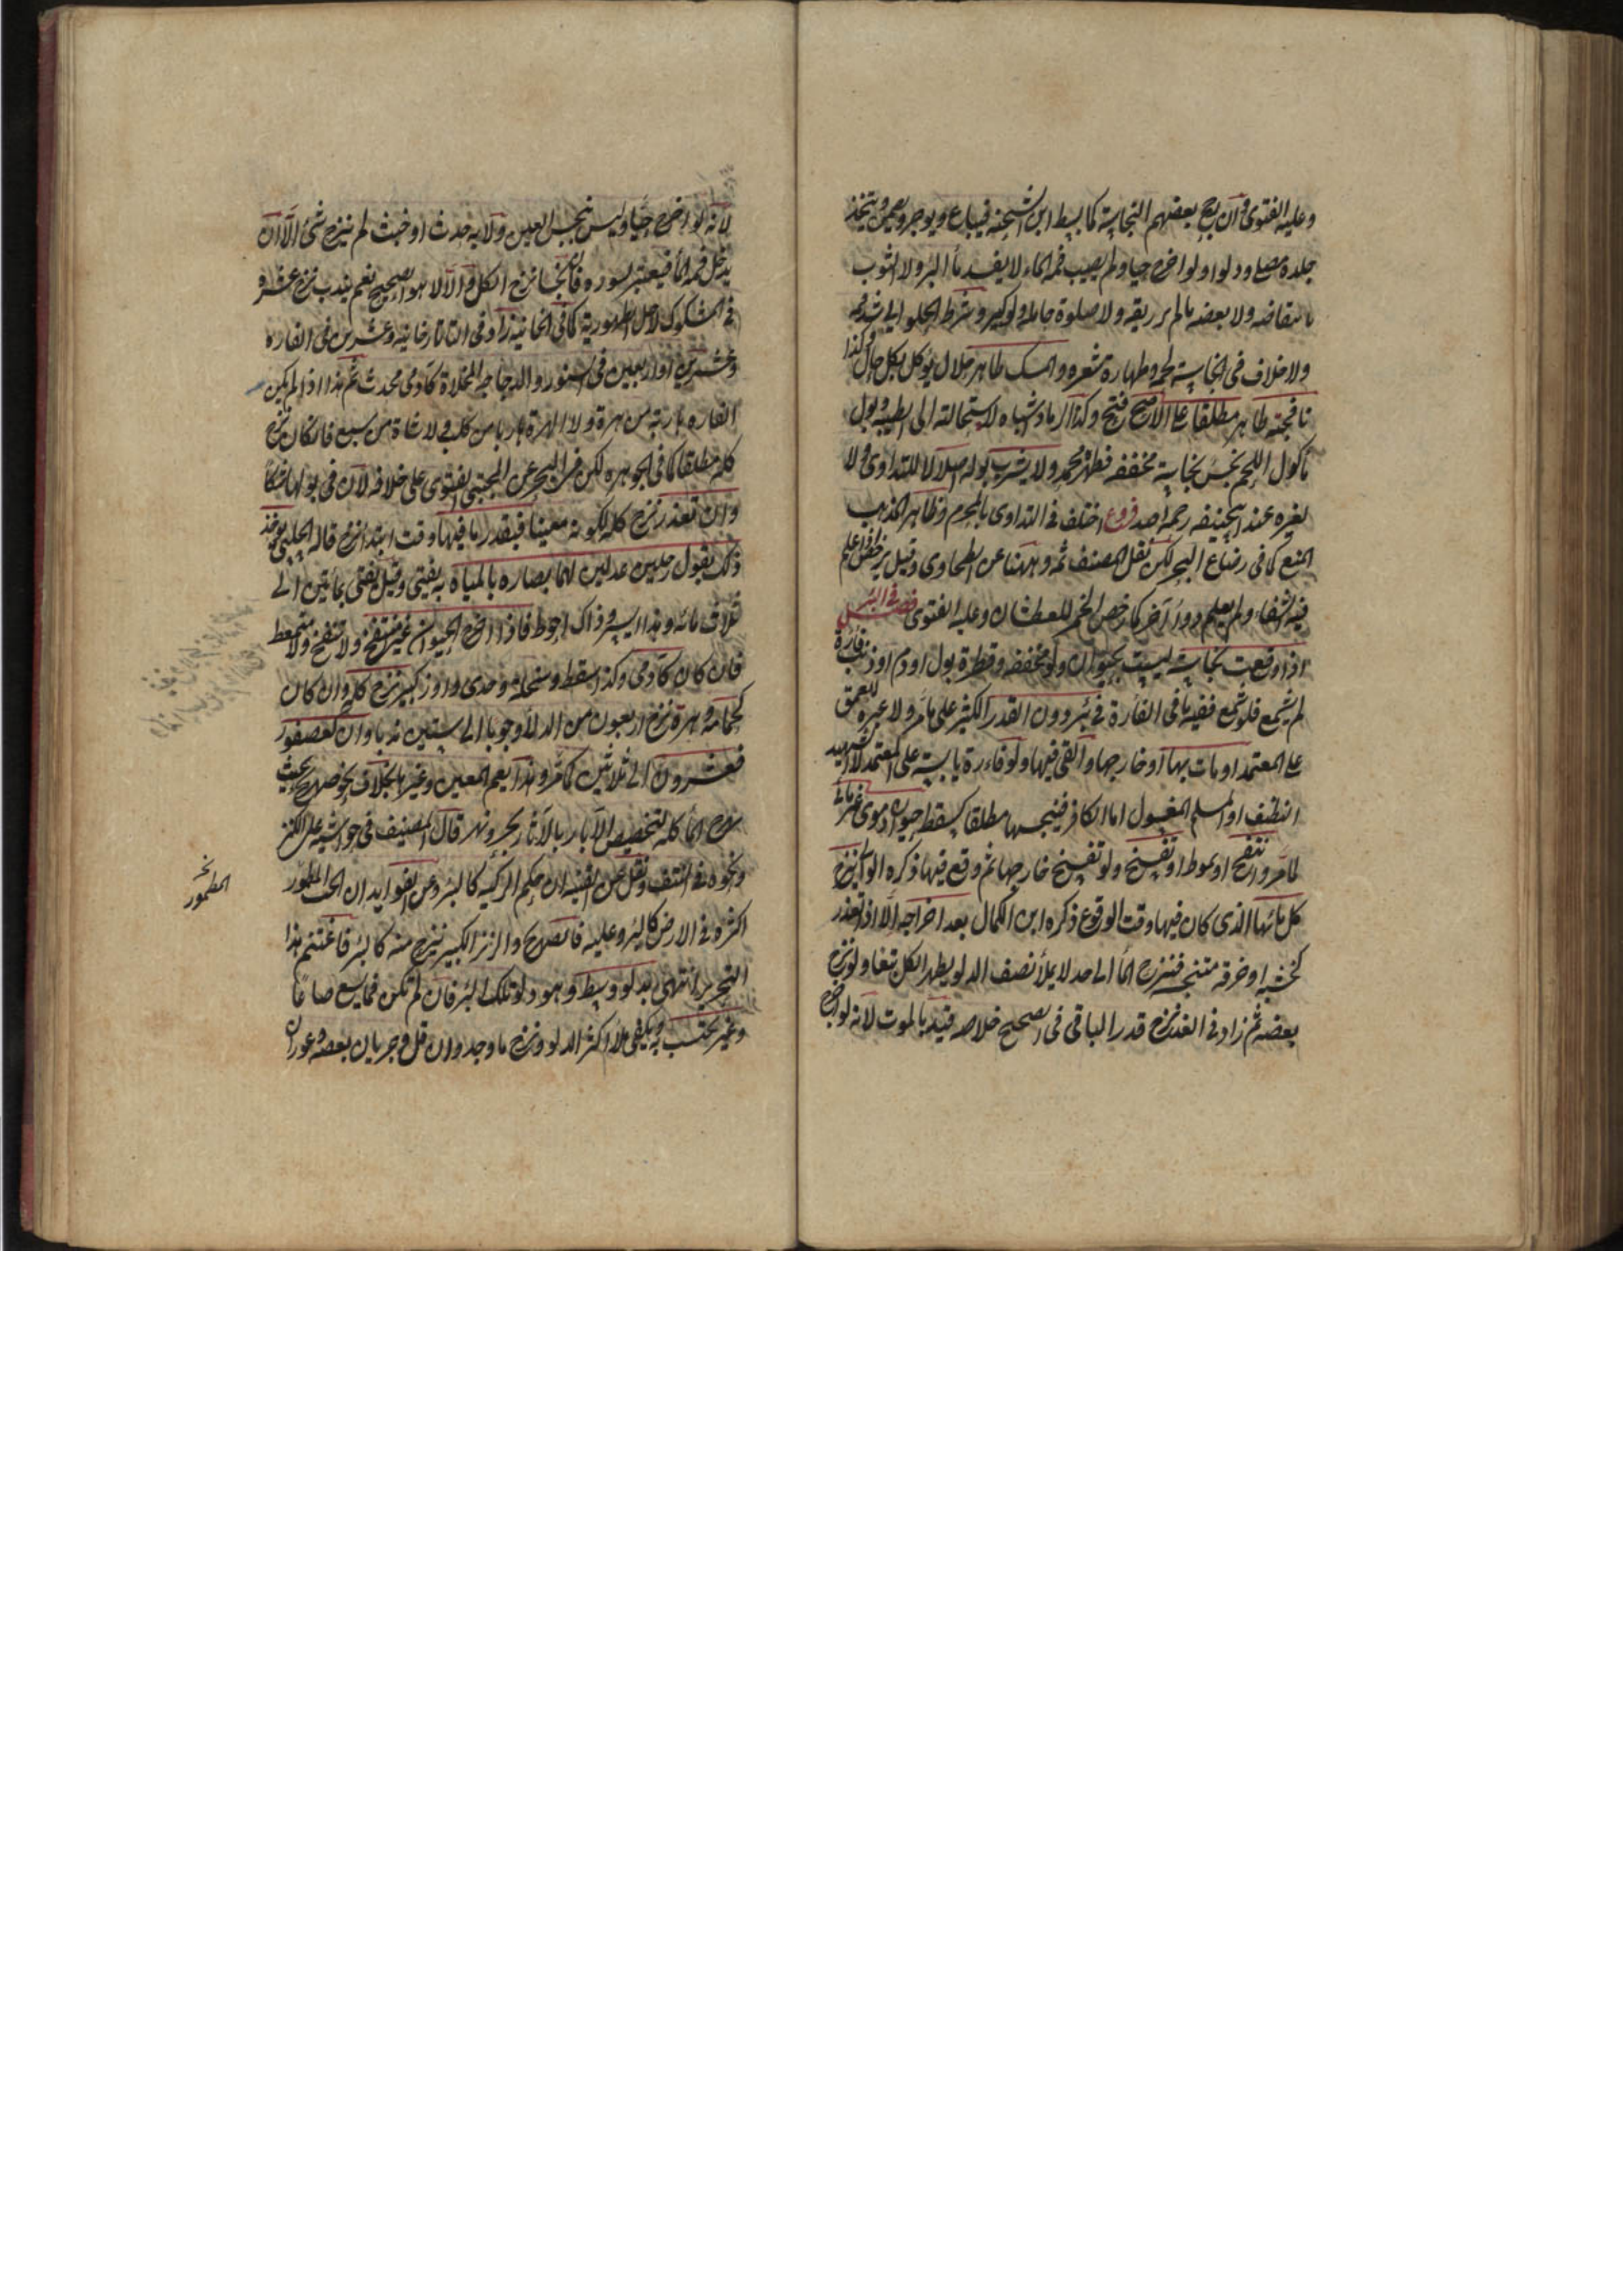 وعليه الفتوى وان رجح بعضهم النجاسة كما بسطه ابن الشحنة فيباع ويوجر ويضمن ويتخذ
جلده مصلى ودلوا ولو اخرج حيا ولم يصب فمه الماء لا يفسد ماء البئر ولا الثوب
بانتفاضه ولا بعضه ما لم ير ريقه ولا صلوة حامله ولو كبيرا وشرط الحلواني شد فمه
ولا خلاف في نجاسة لحمه وطهارة شعره والمسك طاهر حلال يؤكل بكل حال وكذا
نافجته طاهرة مطلقا على الاصح فتح وكذا الزباد اشباه لاستحالته الى الطيبية وبول
مأكول اللحم نجس نجاسة مخففة وطهره محمد ولا يشرب بوله اصلا لا للتداوى ولا
لغيره عند ابيحنيفه رحمه الله فروع اختلف في التداوى بالمحرم وظاهر المذهب
المنع كما فى رضاع البحر لكن نقل المصنف ثمه وههنا عن الطحاوى وقيل يرخص اذا علم
فيه الشفاء ولم يعلم دواء آخر كما رخص الخمر للعطشان وعليه الفتوى فصل فى البئر
اذا وقعت نجاسة ليست بحيوان ولو مخففة او قطرة بول او دم او ذنب فارة
لم يشمع فلو شمع ففيه ما فى الفارة في بئر دون القدر الكثير على ما مر ولا عبرة للعمق
على المعتمد او مات بها او خارجها والقى فيها ولو فارة يابسة على المعتمد الا الشهيد
النظيف او المسلم المغسول اما الكافر فينجسها مطلقا كسقط حيوان دموى غير مائى
لما مر وانتفخ او تمعط او تفسخ ولو تفسخ خارجها ثم وقع فيها ذكره الوانى ينزح
كل مائها الذى كان فيها وقت الوقوع ذكره ابن الكمال بعد اخراجه الا اذا تعذر
كخشبة او خرقة متنجسة فينزح الماء الى حد لا يملأ نصف الدلو يطهر الكل تبعا ولو نزح
بعضه ثم زاد فى الغد نزح قدر الباقى فى الصحيح خلاصه قيد بالموت لانه لو اخرج
لانه لو اخرج حيا وليس نجس العين ولا به حدث او خبث لم ينزح شئ الا ان
يدخل فمه الماء فيعتبر بسوره فان نجسا نزح الكل والا لا هو الصحيح نعم يندب نزح عشرة
في المشكوك لاجل الطهورية كما فى الخانية زاد فى التاتارخانيه وعشرين فى الفاره
وعشرين او اربعين فى السنور والدجاجة المخلاة كآدمى محدث ثم هذا اذا لم يكن
الفاره هاربة من هرة ولا الهرة هاربا من كلب ولا شاة من سبع فان كان نزح
كله مطلقا كما فى الجوهره لكن فى النهر عن المجتبى الفتوى على خلافه لان في بولها شكا
وان تعذر نزح كلها لكونه معينا فبقدر ما فيها وقت ابتداء النزح قاله الحلبى يوخذ
ذلك بقول رجلين عدلين لهما بصارة بالمياه به يفتى وقيل يفتى بمأتين الى
ثلاث مائه وهذا ايسر وذاك احوط فاذا اخرج الحيوان غير منتفخ ولا متفسخ ولا متمعط
فان كان كآدمى وكذا سقط وسخلة وجدى واوز كبير نزح كله وان كان
كحمامة وهرة نزح اربعون من الدلاء وجوبا الى ستين ندبا وان كعصفور
فعشرون الى ثلاثين كما مر وهذا يعم المعين وغيرها بخلاف نحو صهريج حيث
يهراق الماء كله لتخصيص الآبار بالآثار بحر ونهر قال المصنف فى حواشيه على الكنز
ونحوه في النتف ونقل عن القنية ان حكم الركية كالبئر وعن الفوائد ان الحب المطمور
اكثره في الارض كالبئر وعليه فالصهريج والزير الكبير ينزح منه كالبئر فاغتنم هذا
التحرير انتهى بدلو وسط وهو دلو تلك البئر فان لم تكن فما يسع صاعا
وغيره تحتسب به ويكفى ملأ اكثر الدلو ونزح ما وجد وان قل وجريان بعضه وغوران
المطمور